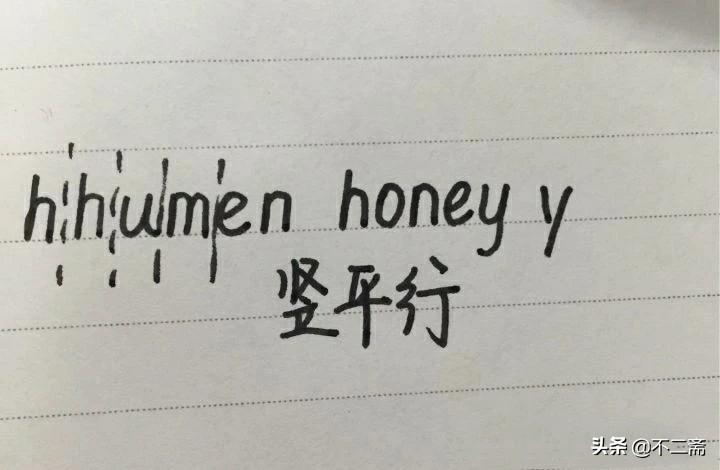 hhumen honey y
竖平行
头条 @不二斋